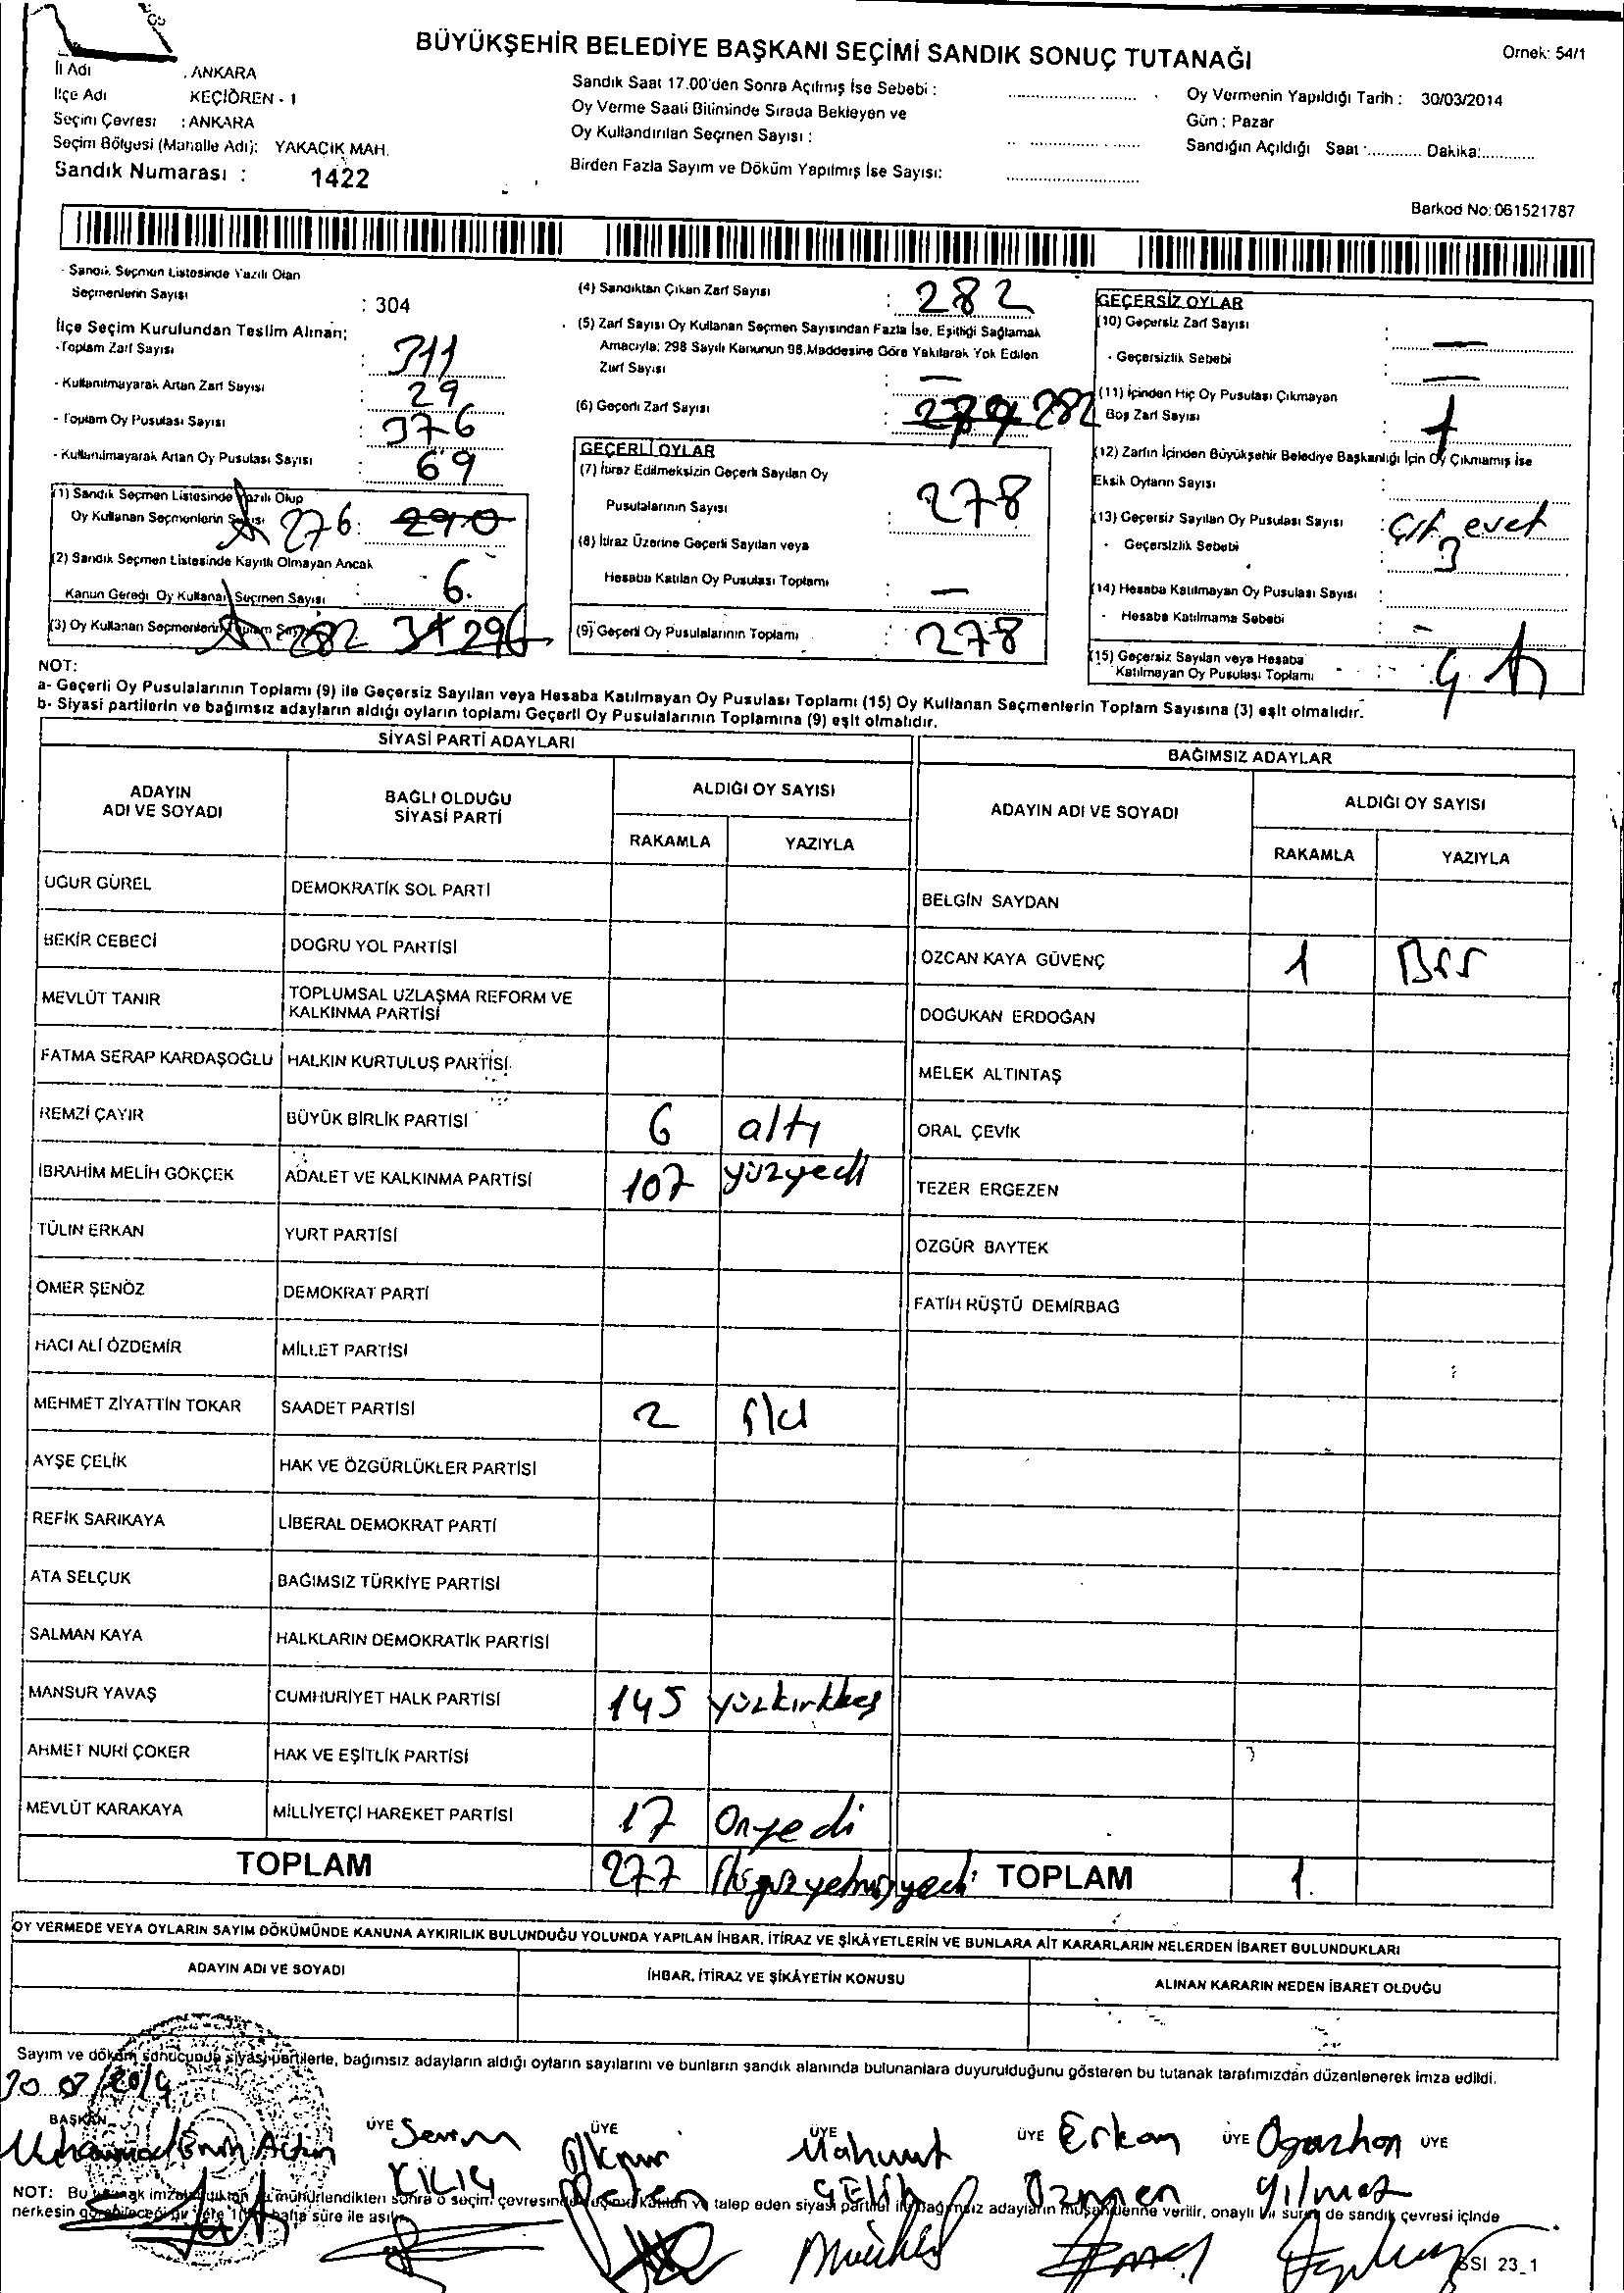 BÜYÜKŞEHİR BELEDİYE BAŞKANI SEÇİMİ SANDIK SONUÇ TUTANAĞI
Örnek: 54/1
İl Adı : ANKARA
İlçe Adı KEÇİÖREN - 1
Seçim Çevresi : ANKARA
Seçim Bölgesi (Mahalle Adı): YAKACIK MAH.
Sandık Numarası : 1422
Sandık Saat 17.00'den Sonra Açılmış İse Sebebi :
Oy Verme Saati Bitiminde Sırada Bekleyen ve
Oy Kullandırılan Seçmen Sayısı :
Birden Fazla Sayım ve Döküm Yapılmış İse Sayısı:
Oy Vermenin Yapıldığı Tarih : 30/03/2014
Gün : Pazar
Sandığın Açıldığı Saat :............ Dakika:............
Barkod No: 061521787
- Sandık Seçmen Listesinde Yazılı Olan
Seçmenlerin Sayısı : 304
İlçe Seçim Kurulundan Teslim Alınan;
- Toplam Zarf Sayısı : 311
- Kullanılmayarak Artan Zarf Sayısı : 29
- Toplam Oy Pusulası Sayısı : 376
- Kullanılmayarak Artan Oy Pusulası Sayısı : 69
(1) Sandık Seçmen Listesinde Yazılı Olup
Oy Kullanan Seçmenlerin Sayısı 276 290
(2) Sandık Seçmen Listesinde Kayıtlı Olmayan Ancak
Kanun Gereği Oy Kullanan Seçmen Sayısı : 6
(3) Oy Kullanan Seçmenlerin Toplam Sayısı 282 296
(4) Sandıktan Çıkan Zarf Sayısı : 282
(5) Zarf Sayısı Oy Kullanan Seçmen Sayısından Fazla İse, Eşitliği Sağlamak
Amacıyla; 298 Sayılı Kanunun 98.Maddesine Göre Yakılarak Yok Edilen
Zarf Sayısı : —
(6) Geçerli Zarf Sayısı : 282
GEÇERLİ OYLAR
(7) İtiraz Edilmeksizin Geçerli Sayılan Oy
Pusulalarının Sayısı : 278
(8) İtiraz Üzerine Geçerli Sayılan veya
Hesaba Katılan Oy Pusulası Toplamı : —
(9) Geçerli Oy Pusulalarının Toplamı : 278
GEÇERSİZ OYLAR
(10) Geçersiz Zarf Sayısı : —
- Geçersizlik Sebebi : —
(11) İçinden Hiç Oy Pusulası Çıkmayan
Boş Zarf Sayısı : 1
(12) Zarfın İçinden Büyükşehir Belediye Başkanlığı İçin Oy Çıkmamış İse
Eksik Oyların Sayısı :
(13) Geçersiz Sayılan Oy Pusulası Sayısı : Çift evet
- Geçersizlik Sebebi 3
(14) Hesaba Katılmayan Oy Pusulası Sayısı :
- Hesaba Katılmama Sebebi : —
(15) Geçersiz Sayılan veya Hesaba
Katılmayan Oy Pusulası Toplamı : 4
NOT:
a- Geçerli Oy Pusulalarının Toplamı (9) ile Geçersiz Sayılan veya Hesaba Katılmayan Oy Pusulası Toplamı (15) Oy Kullanan Seçmenlerin Toplam Sayısına (3) eşit olmalıdır.
b- Siyasi partilerin ve bağımsız adayların aldığı oyların toplamı Geçerli Oy Pusulalarının Toplamına (9) eşit olmalıdır.
SİYASİ PARTİ ADAYLARI
BAĞIMSIZ ADAYLAR
ADAYIN ADI VE SOYADI BAĞLI OLDUĞU SİYASİ PARTİ ALDIĞI OY SAYISI ADAYIN ADI VE SOYADI ALDIĞI OY SAYISI
RAKAMLA YAZIYLA RAKAMLA YAZIYLA
UĞUR GÜREL DEMOKRATİK SOL PARTİ BELGİN SAYDAN
BEKİR CEBECİ DOĞRU YOL PARTİSİ ÖZCAN KAYA GÜVENÇ 1 Bir
MEVLÜT TANIR TOPLUMSAL UZLAŞMA REFORM VE KALKINMA PARTİSİ DOĞUKAN ERDOĞAN
FATMA SERAP KARDAŞOĞLU HALKIN KURTULUŞ PARTİSİ MELEK ALTINTAŞ
REMZİ ÇAYIR BÜYÜK BİRLİK PARTİSİ 6 altı ORAL ÇEVİK
İBRAHİM MELİH GÖKÇEK ADALET VE KALKINMA PARTİSİ 107 yüzyedi TEZER ERGEZEN
TÜLİN ERKAN YURT PARTİSİ ÖZGÜR BAYTEK
ÖMER ŞENÖZ DEMOKRAT PARTİ FATİH RÜŞTÜ DEMİRBAĞ
HACI ALİ ÖZDEMİR MİLLET PARTİSİ
MEHMET ZİYATTİN TOKAR SAADET PARTİSİ 2 iki
AYŞE ÇELİK HAK VE ÖZGÜRLÜKLER PARTİSİ
REFİK SARIKAYA LİBERAL DEMOKRAT PARTİ
ATA SELÇUK BAĞIMSIZ TÜRKİYE PARTİSİ
SALMAN KAYA HALKLARIN DEMOKRATİK PARTİSİ
MANSUR YAVAŞ CUMHURİYET HALK PARTİSİ 145 yüzkırkbeş
AHMET NURİ ÇÖKER HAK VE EŞİTLİK PARTİSİ
MEVLÜT KARAKAYA MİLLİYETÇİ HAREKET PARTİSİ 17 Onyedi
TOPLAM 277 ikiyüzyetmişyedi TOPLAM 1
OY VERMEDE VEYA OYLARIN SAYIM DÖKÜMÜNDE KANUNA AYKIRILIK BULUNDUĞU YOLUNDA YAPILAN İHBAR, İTİRAZ VE ŞİKÂYETLERİN VE BUNLARA AİT KARARLARIN NELERDEN İBARET BULUNDUKLARI
ADAYIN ADI VE SOYADI İHBAR, İTİRAZ VE ŞİKÂYETİN KONUSU ALINAN KARARIN NEDEN İBARET OLDUĞU
Sayım ve döküm sonucunda siyasi partilerle, bağımsız adayların aldığı oyların sayılarını ve bunların sandık alanında bulunanlara duyurulduğunu gösteren bu tutanak tarafımızdan düzenlenerek imza edildi.
BAŞKAN ÜYE ÜYE ÜYE ÜYE ÜYE ÜYE
Sevim KILIÇ
Mahmut ÇELİK
Erkan Özmen
Oğuzhan Yılmaz
NOT: Bu tutanak imzalandıktan ve mühürlendikten sonra o seçim çevresinde seçime katılan ve talep eden siyasi partiler ile bağımsız adayların müşahitlerine verilir, onaylı bir sureti de sandık çevresi içinde
herkesin görebileceği bir yere 1 hafta süre ile asılır.
SSI 23_1